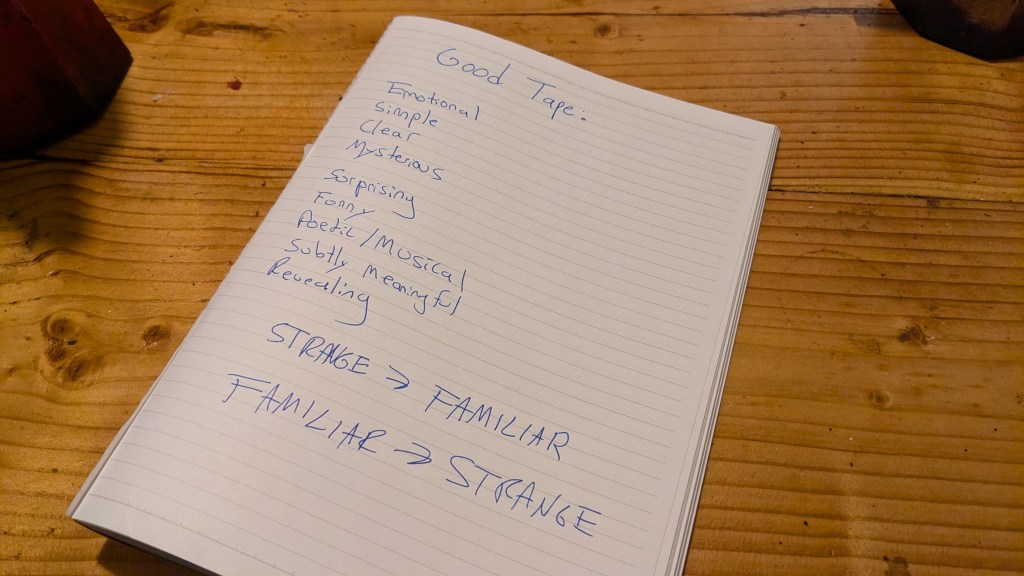 Good Tape:
Emotional
Simple
Clear
Mysterious
Surprising
Funny
Poetic/Musical
Subtly Meaningful
Revealing
STRANGE → FAMILIAR
FAMILIAR → STRANGE